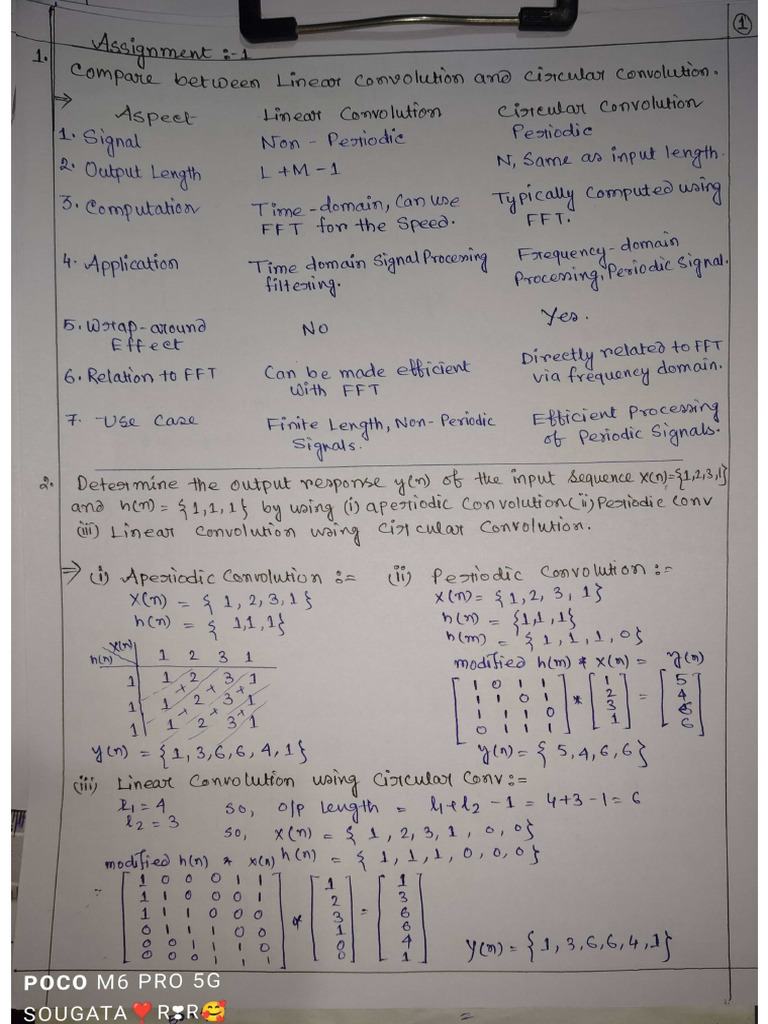 ①
Assignment :-1
1. Compare between Linear Convolution and Circular Convolution.
⇒ Aspect Linear Convolution Circular Convolution
1. Signal Non - Periodic Periodic
2. Output Length L + M - 1 N, Same as input length.
3. Computation Time-domain, Can use Typically Computed using
FFT for the Speed. FFT.
4. Application Time domain Signal Processing Frequency-domain
filtering. Processing, Periodic Signal.
5. Wrap-around No Yes.
Effect
6. Relation to FFT Can be made efficient Directly related to FFT
with FFT via frequency domain.
7. Use Case Finite Length, Non-Periodic Efficient Processing
Signals. of Periodic Signals.
2. Determine the output response y(n) of the input sequence x(n)={1,2,3,1}
and h(n) = {1,1,1} by using (i) aperiodic Convolution (ii) Periodic Conv
(iii) Linear Convolution using Circular Convolution.
⇒ (i) Aperiodic Convolution := (ii) Periodic Convolution :-
x(n) = { 1, 2, 3, 1} x(n) = {1, 2, 3, 1}
h(n) = { 1,1,1} h(n) = {1,1,1}
h(m) = { 1, 1, 1, 0}
x(n) modified h(m) * x(n) = y(n)
h(n) 1 2 3 1
1 1 2 3 1
1 1 2 3 1
1 1 2 3 1
1 0 1 1 1 5
1 1 0 1 * 2 = 4
1 1 1 0 3 6
0 1 1 1 1 6
y(n) = {1,3,6,6,4,1} y(n) = { 5,4,6,6}
(iii) Linear Convolution using Circular Conv:=
l1 = 4 So, O/P length = l1+l2 - 1 = 4+3-1 = 6
l2 = 3 So, x(n) = { 1, 2, 3, 1, 0, 0}
modified h(n) * x(n) h(n) = { 1, 1, 1, 0, 0, 0}
1 0 0 0 1 1 1 1
1 1 0 0 0 1 2 3
1 1 1 0 0 0 * 3 = 6
0 1 1 1 0 0 1 6
0 0 1 1 1 0 0 4
0 0 0 1 1 1 0 1
y(n) = {1,3,6,6,4,1}
POCO M6 PRO 5G
SOUGATA❤️R❣R🥰